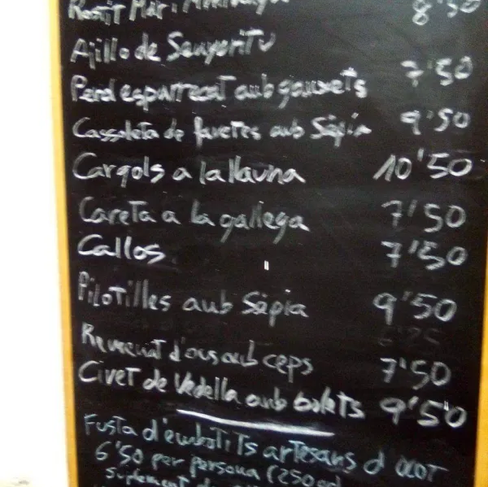 Rostit Mar i Muntanya 8'50
Ajillo de Senyoritu
Perol esparracat amb gambets 7'50
Cassoleta de favetes amb Sépia 9'50
Cargols a la llauna 10'50
Careta a la gallega 7'50
Callos 7'50
Pilotilles amb Sépia 9'50
Remenat d'ous amb ceps 7'50
Civet de Vedella amb bolets 9'50
Fusta d'embotits artesans d'
6'50 per persona (250gr)
suplement de